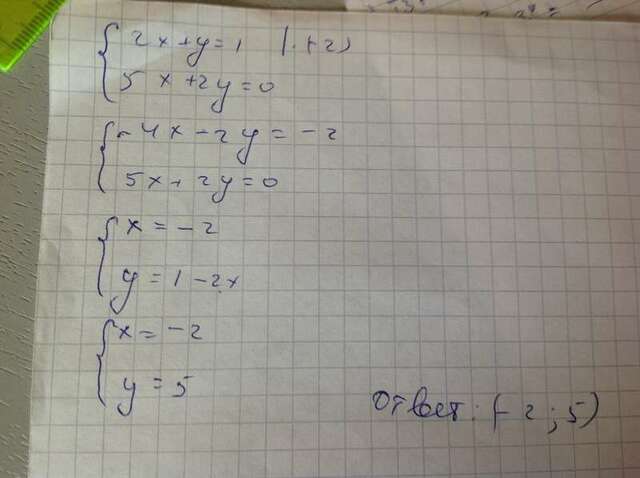 2x+y=1 |·(-2)
5x+2y=0
-4x-2y=-2
5x+2y=0
x=-2
y=1-2x
x=-2
y=5
Ответ: (-2;5)